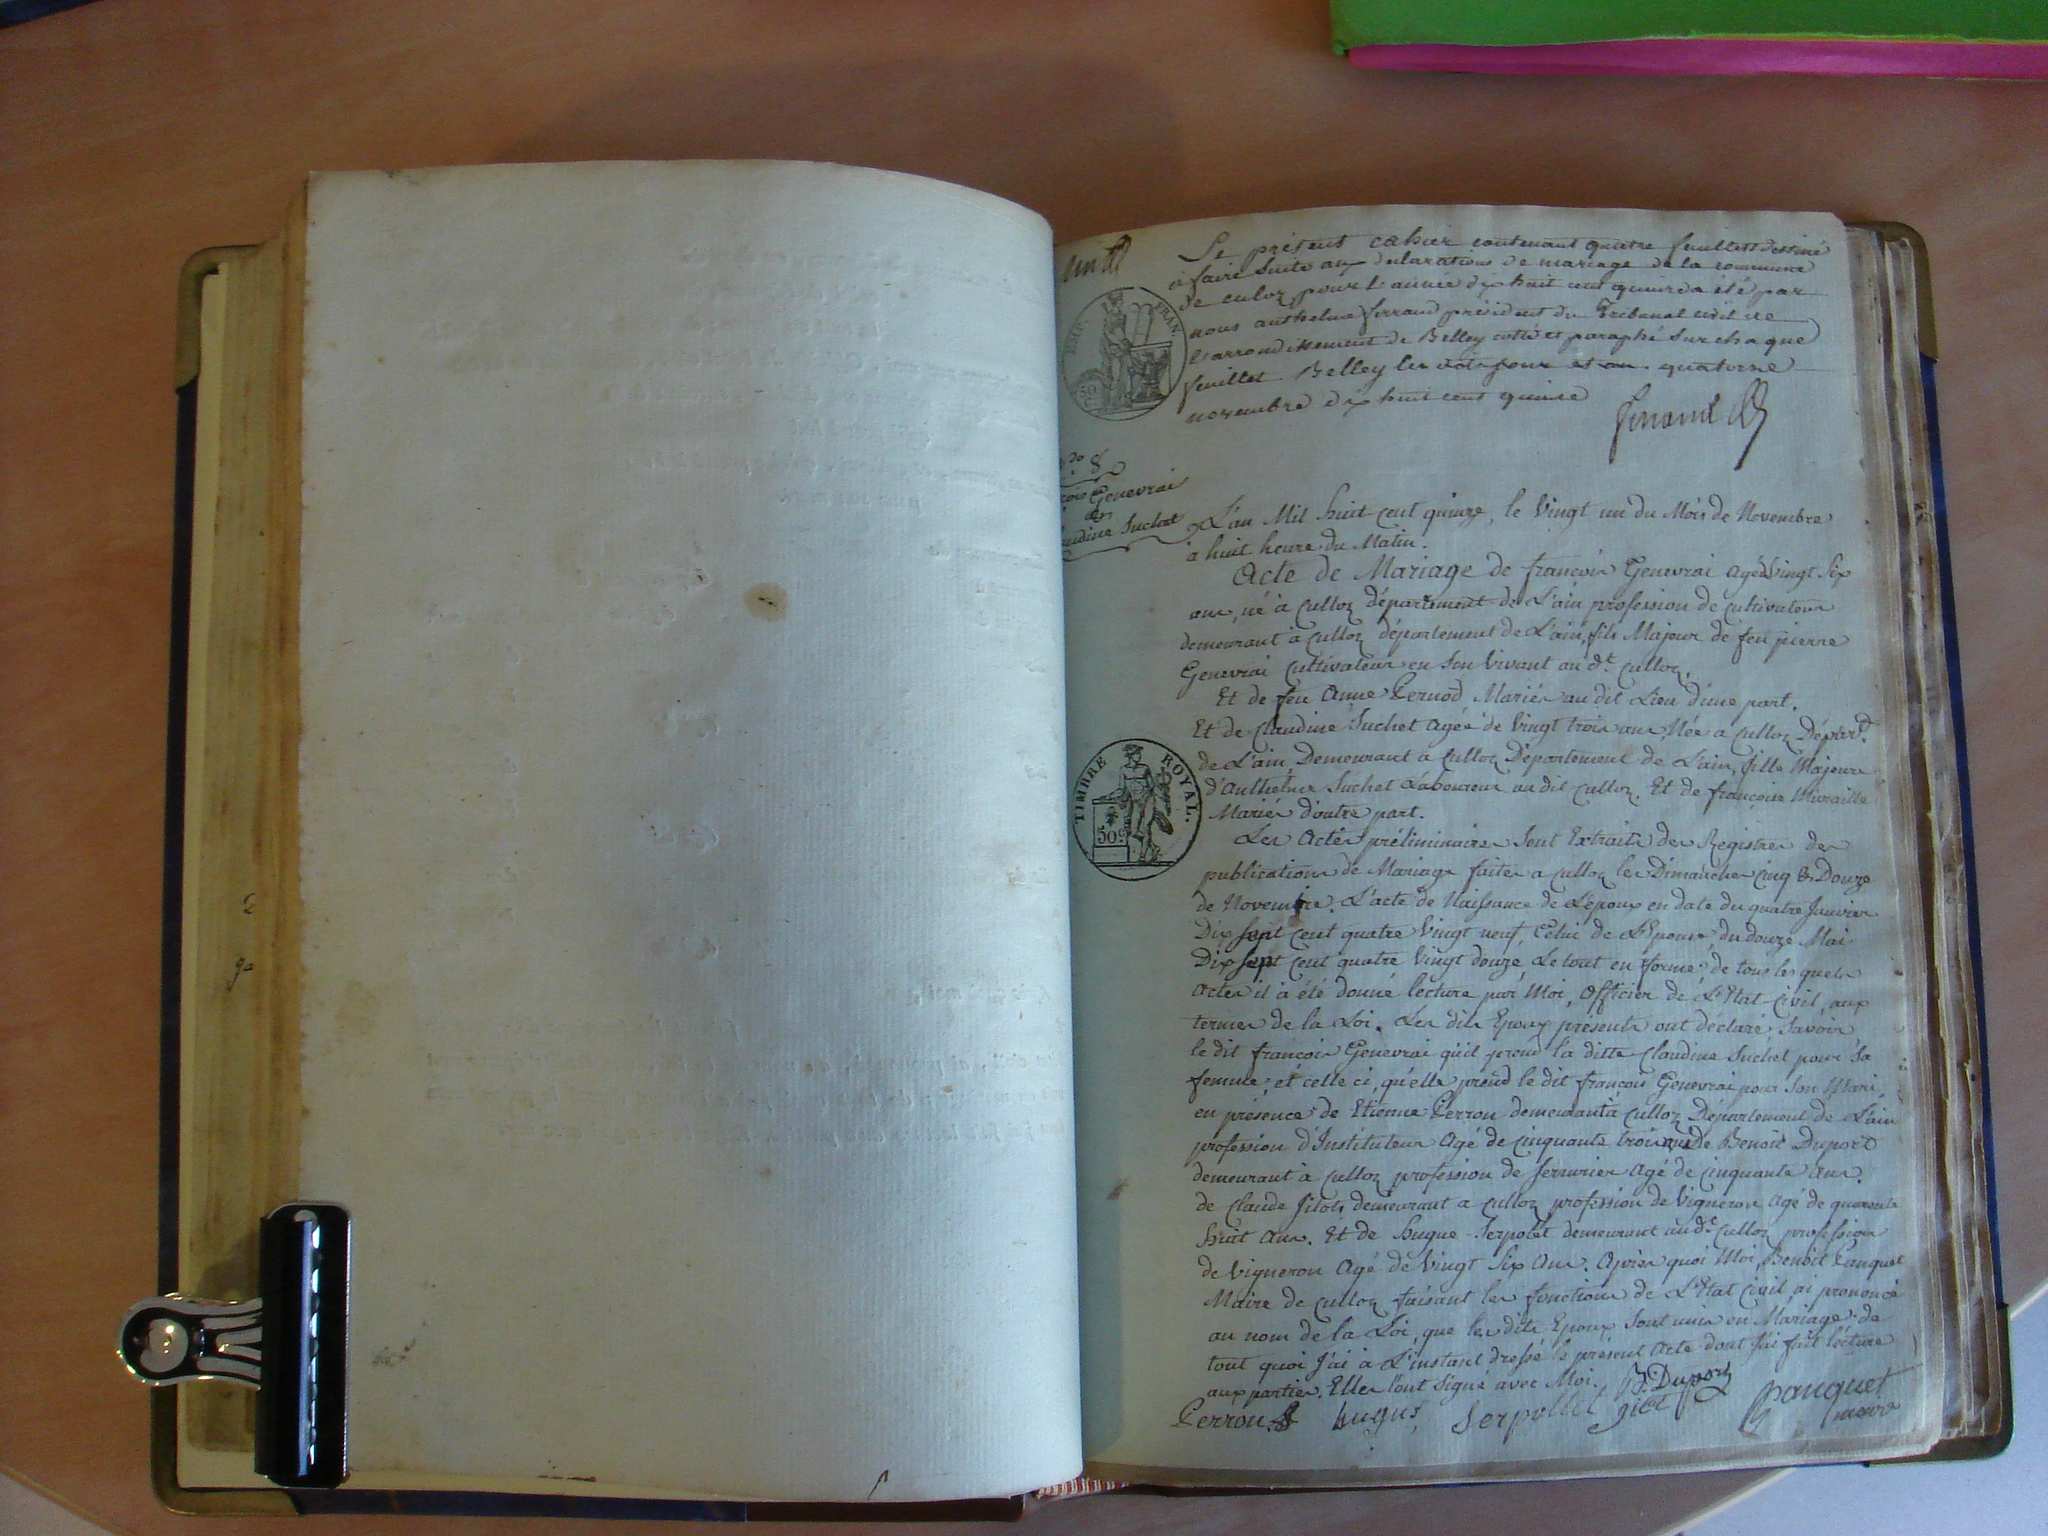 Le présent cahier contenant quatre feuillets destiné
à faire suite aux déclarations de mariage de la commune
de culoz pour l'année dix huit cent quinze a été par
nous anthelme ferrand président du Tribunal civil de
l'arrondissement de Belley cotté et paraphé sur chaque
feuillet Belley les quatorze
novembre dix huit cent quinze
EMP. FRAN.
Genevrai
Suchet
L'an Mil huit cent quinze, le Vingt un du Mois de Novembre
à huit heure du Matin.
Acte de Mariage de françois Genevrai agé de Vingt Six
ans, né à Culloz département de L'ain profession de cultivateur
demeurant à Culloz département de L'ain, fils Majeur de feu pierre
Genevrai Cultivateur en Son Vivant au dt. Culloz.
Et de feu Anne Pernod Mariés au dit Lieu d'une part.
Et de Claudine Suchet Agée de Vingt trois ans, Née a Culloz Départ.
de L'ain, Demeurant à Culloz Département de L'ain, fille Majeure
d'Anthelme Suchet Laboureur au dit Culloz. Et de françoise Miraille
Mariés d'autre part.
TIMBRE ROYAL.
50c
Les Actes préliminaires Sont Extraits des Registres des
publications de Mariage faites a Culloz les Dimanches cinq & Douze
de Novembre. L'acte de Naissance de L'époux en date du quatre Janvier
Dix sept cent quatre Vingt neuf, Celui de L'Epouse du douze Mai
Dix sept cent quatre Vingt douze Le tout en forme: de tous les quels
Actes il à été donné lecture par Moi, Officier de L'Etat Civil, aux
termes de la Loi. Les dits Epoux présents ont déclaré Savoir
le dit françois Genevrai qu'il prend la ditte Claudine Suchet pour Sa
femme: et celle ci, qu'elle prend le dit françois Genevrai pour Son Mari,
en présence de Etienne Perron demeurant à Culloz Département de L'ain
profession d'Instituteur Agé de Cinquante trois ans de Benoit Duport
demeurant à Culloz profession de Serrurier Agé de Cinquante Ans.
de Claude Jilot, demeurant a Culloz profession de Vigneron Agé de quarente
huit Ans. Et de Hugue Serpolet demeurant au dt. Culloz profession
de Vigneron Agé de Vingt Six Ans. Après quoi Moi, Benoit Panquet
Maire de Culloz faisant les fonctions de L'Etat Civil, ai prononcé
au nom de la Loi, que les dits Epoux Sont unis en Mariage: de
tout quoi J'ai à L'instant dressé le présent Acte dont J'ai fait lécture
aux parties. Elles l'ont Signé avec Moi. B. Duport
Perron hugus Serpollet panquet